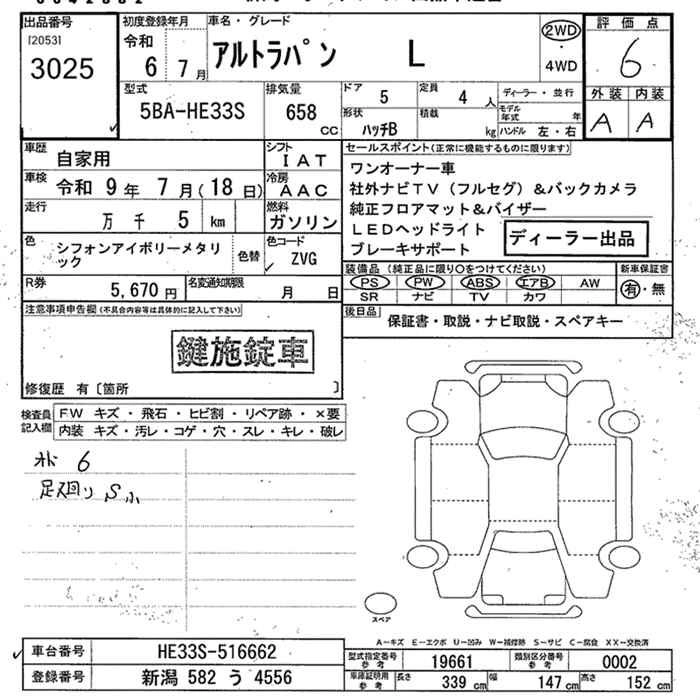 出品番号
[2053]
3025
初度登録年月
令和
6 7月
車名・グレード
アルトラパン L
2WD
・
4WD
評価点
6
外装 内装
A A
型式
5BA-HE33S
排気量
658
CC
ドア
5
定員
4 人
形状
ハッチB
積載
kg
ディーラー・並行
モデル年式 年
ハンドル 左・右
車歴
自家用
シフト
IAT
車検
令和 9年 7月(18日)
冷房
AAC
走行
万 千 5 km
燃料
ガソリン
色
シフォンアイボリーメタリック
色替
色コード
ZVG
R券
5,670円
名変通知期限
月 日
セールスポイント(正常に機能するものに限ります)
ワンオーナー車
社外ナビTV(フルセグ)&バックカメラ
純正フロアマット&バイザー
LEDヘッドライト
ブレーキサポート
ディーラー出品
装備品(純正品に限り○をつけてください)
PS PW ABS エアB AW
SR ナビ TV カワ
新車保証書
有・無
後日品
保証書・取説・ナビ取説・スペアキー
注意事項申告欄(不具合内容等は具体的に記入して下さい)
鍵施錠車
修復歴 有〔箇所 〕
検査員記入欄
FW キズ・飛石・ヒビ割・リペア跡・×要
内装 キズ・汚レ・コゲ・穴・スレ・キレ・破レ
オド 6
足廻り Sふ
スペア
A-キズ E-エクボ U-凹み W-補修跡 S-サビ C-腐食 XX-交換済
車台番号
HE33S-516662
登録番号
新潟 582 う 4556
型式指定番号 参考
19661
類別区分番号 参考
0002
車庫証明用 参考
長さ 339 cm
幅 147 cm
高さ 152 cm